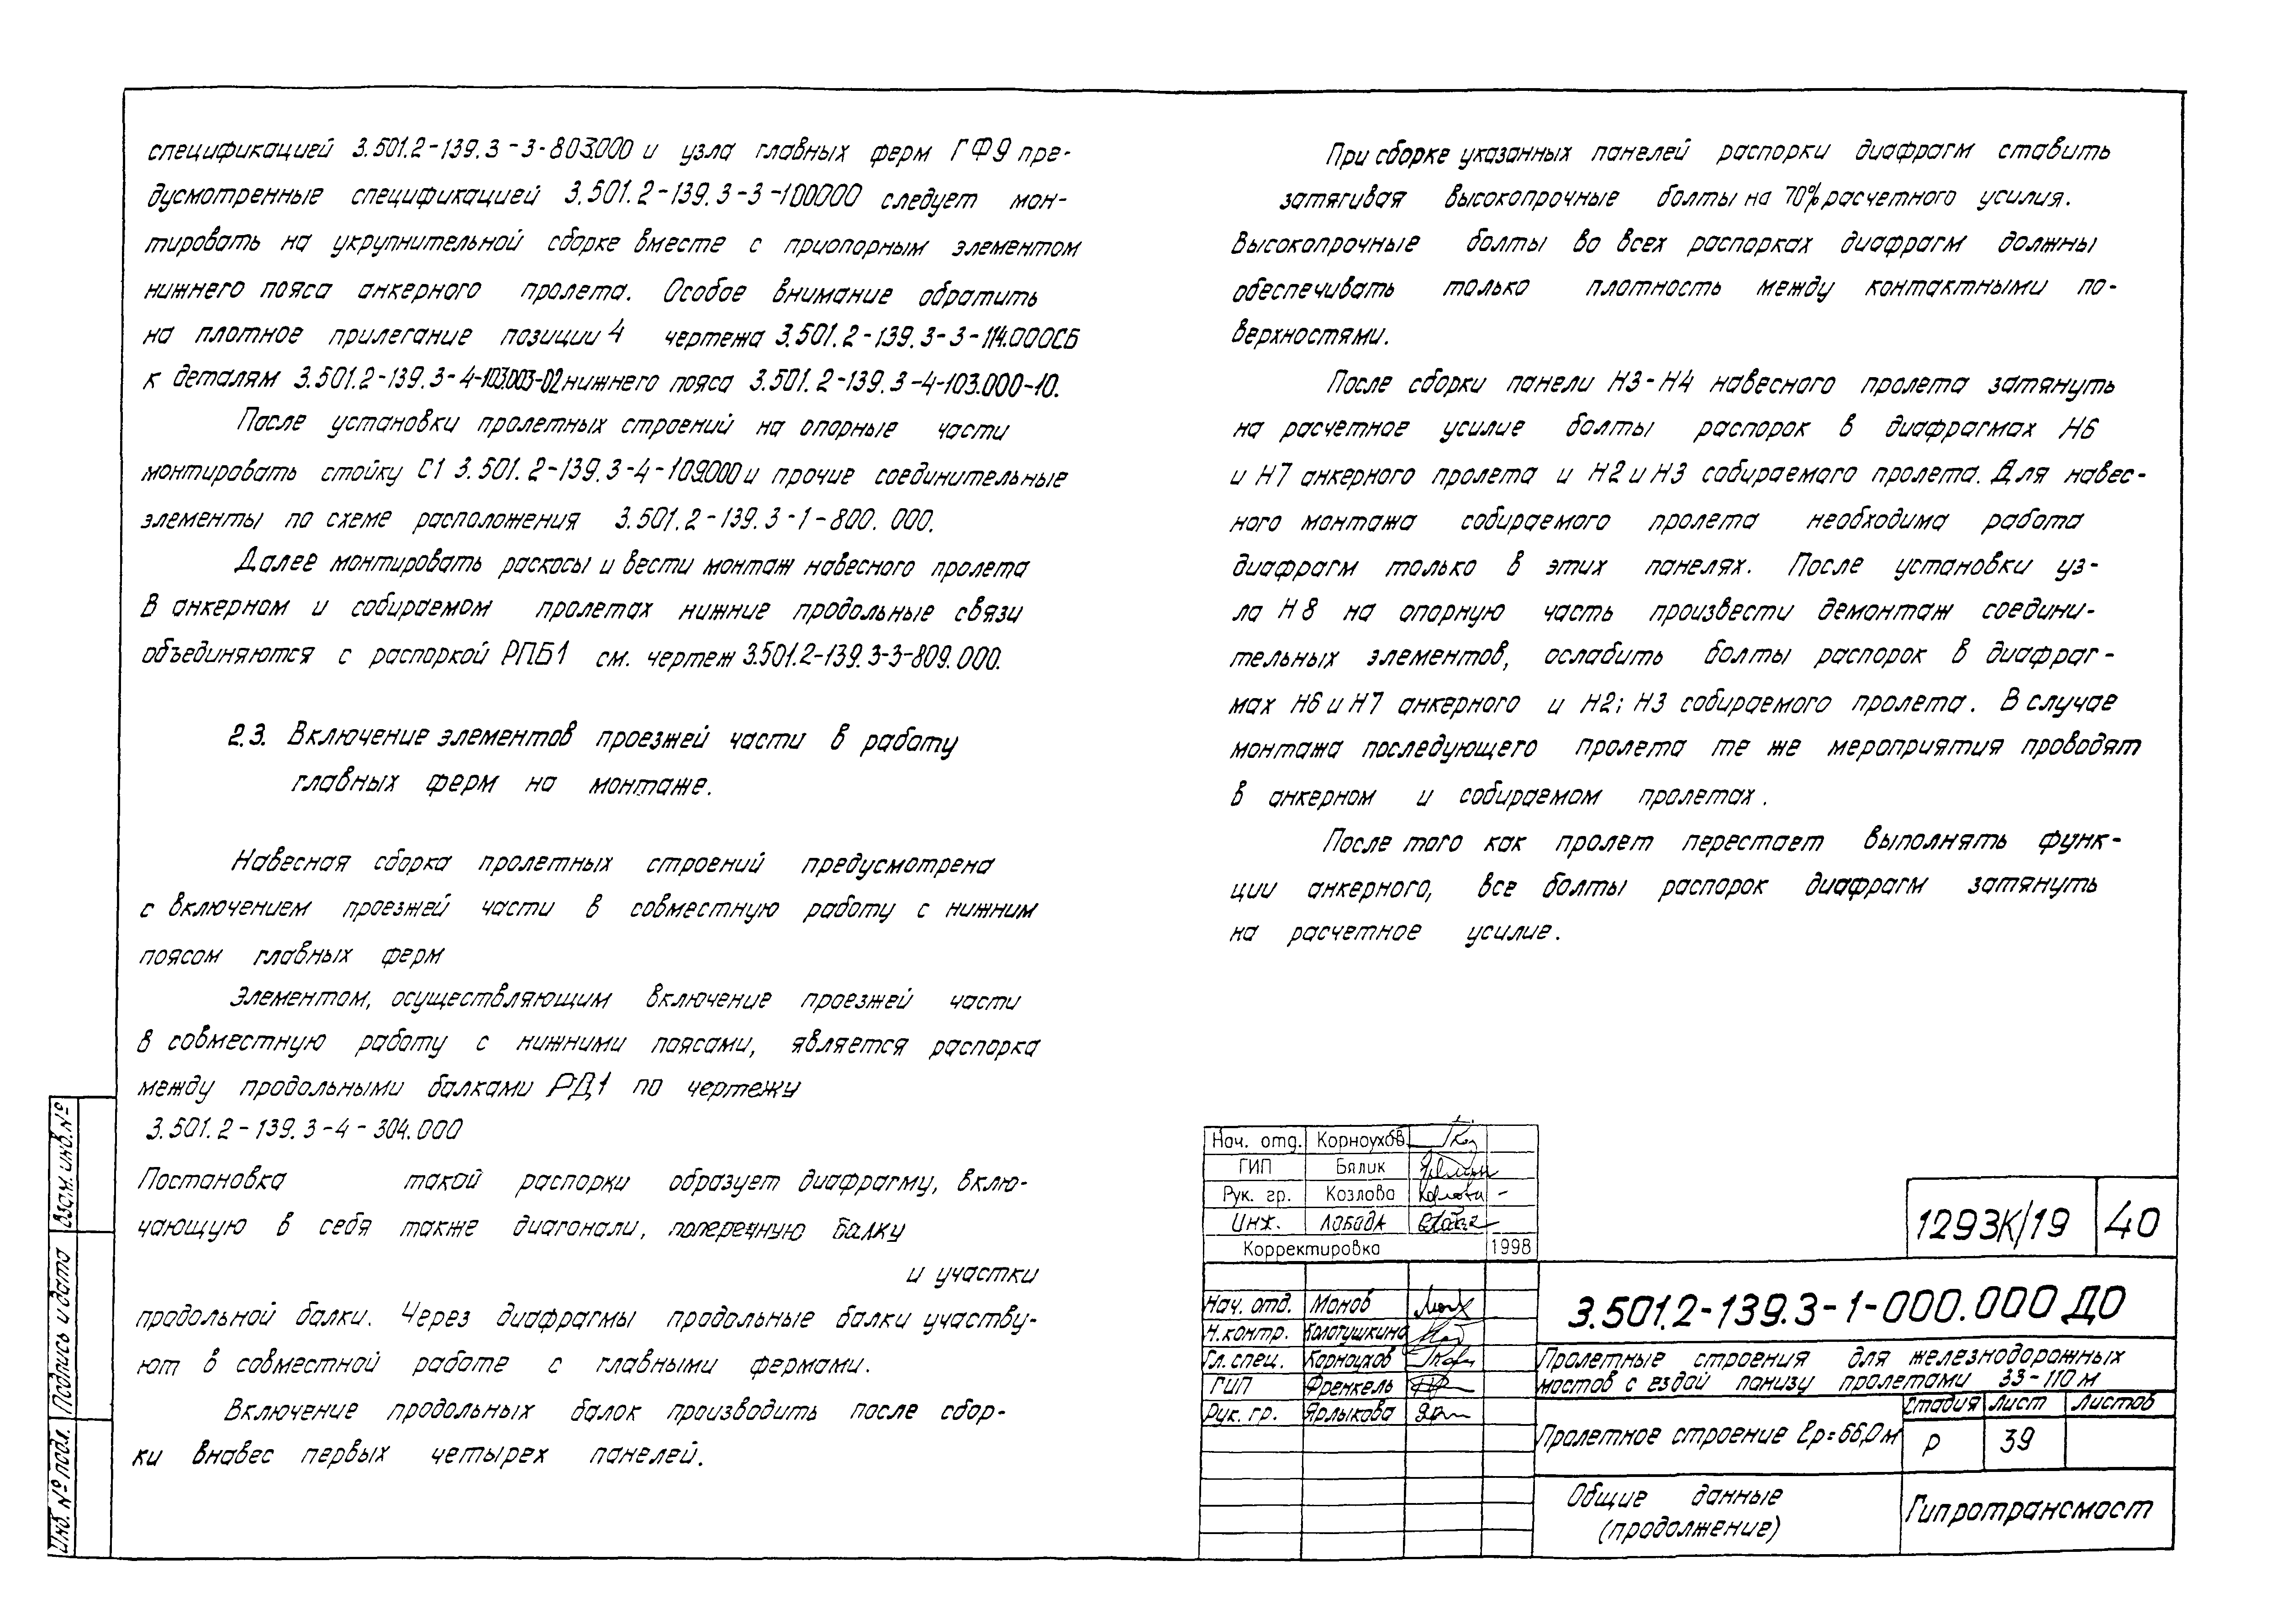 спецификацией 3.501.2-139.3-3-803.000 и узла главных ферм ГФ9 пре-
дусмотренные спецификацией 3.501.2-139.3-3-100000 следует мон-
тировать на укрупнительной сборке вместе с приопорным элементом
нижнего пояса анкерного пролета. Особое внимание обратить
на плотное прилегание позиции 4 чертежа 3.501.2-139.3-3-114.000СБ
к деталям 3.501.2-139.3-4-103.003-02 нижнего пояса 3.501.2-139.3-4-103.000-10.
После установки пролетных строений на опорные части
монтировать стойку С1 3.501.2-139.3-4-109.000 и прочие соединительные
элементы по схеме расположения 3.501.2-139.3-1-800.000.
Далее монтировать раскосы и вести монтаж навесного пролета
В анкерном и собираемом пролетах нижние продольные связи
объединяются с распоркой РПБ1 см. чертеж 3.501.2-139.3-3-809.000.
2.3. Включение элементов проезжей части в работу
главных ферм на монтаже.
Навесная сборка пролетных строений предусмотрена
с включением проезжей части в совместную работу с нижним
поясом главных ферм
Элементом, осуществляющим включение проезжей части
в совместную работу с нижними поясами, является распорка
между продольными балками РД1 по чертежу
3.501.2-139.3-4-304.000
Постановка такой распорки образует диафрагму, вклю-
чающую в себя также диагонали, поперечную балку
и участки
продольной балки. Через диафрагмы продольные балки участву-
ют в совместной работе с главными фермами.
Включение продольных балок производить после сбор-
ки внавес первых четырех панелей.
При сборке указанных панелей распорки диафрагм ставить
затягивая высокопрочные болты на 70% расчетного усилия.
Высокопрочные болты во всех распорках диафрагм должны
обеспечивать только плотность между контактными по-
верхностями.
После сборки панели Н3-Н4 навесного пролета затянуть
на расчетное усилие болты распорок в диафрагмах Н6
и Н7 анкерного пролета и Н2 и Н3 собираемого пролета. Для навес-
ного монтажа собираемого пролета необходима работа
диафрагм только в этих панелях. После установки уз-
ла Н8 на опорную часть произвести демонтаж соедини-
тельных элементов, ослабить болты распорок в диафраг-
мах Н6 и Н7 анкерного и Н2; Н3 собираемого пролета. В случае
монтажа последующего пролета те же мероприятия проводят
в анкерном и собираемом пролетах.
После того как пролет перестает выполнять функ-
ции анкерного, все болты распорок диафрагм затянуть
на расчетное усилие.
Взам. инв. №
Подпись и дата
Инв. № подл.
Нач. отд. Корноухов
ГИП Бялик
Рук. гр. Козлова
Инж. Лобода
Корректировка 1998
1293К/19 40
Нач. отд. Монов
Н.контр. Колотушкина
Гл. спец. Корноухов
ГИП Френкель
Рук. гр. Ярлыкова
3.501.2-139.3-1-000.000 ДО
Пролетные строения для железнодорожных
мостов с ездой понизу пролетами 33-110 м
Пролетное строение ℓр=66,0 м
Стадия Лист Листов
Р 39
Общие данные
(продолжение)
Гипротрансмост